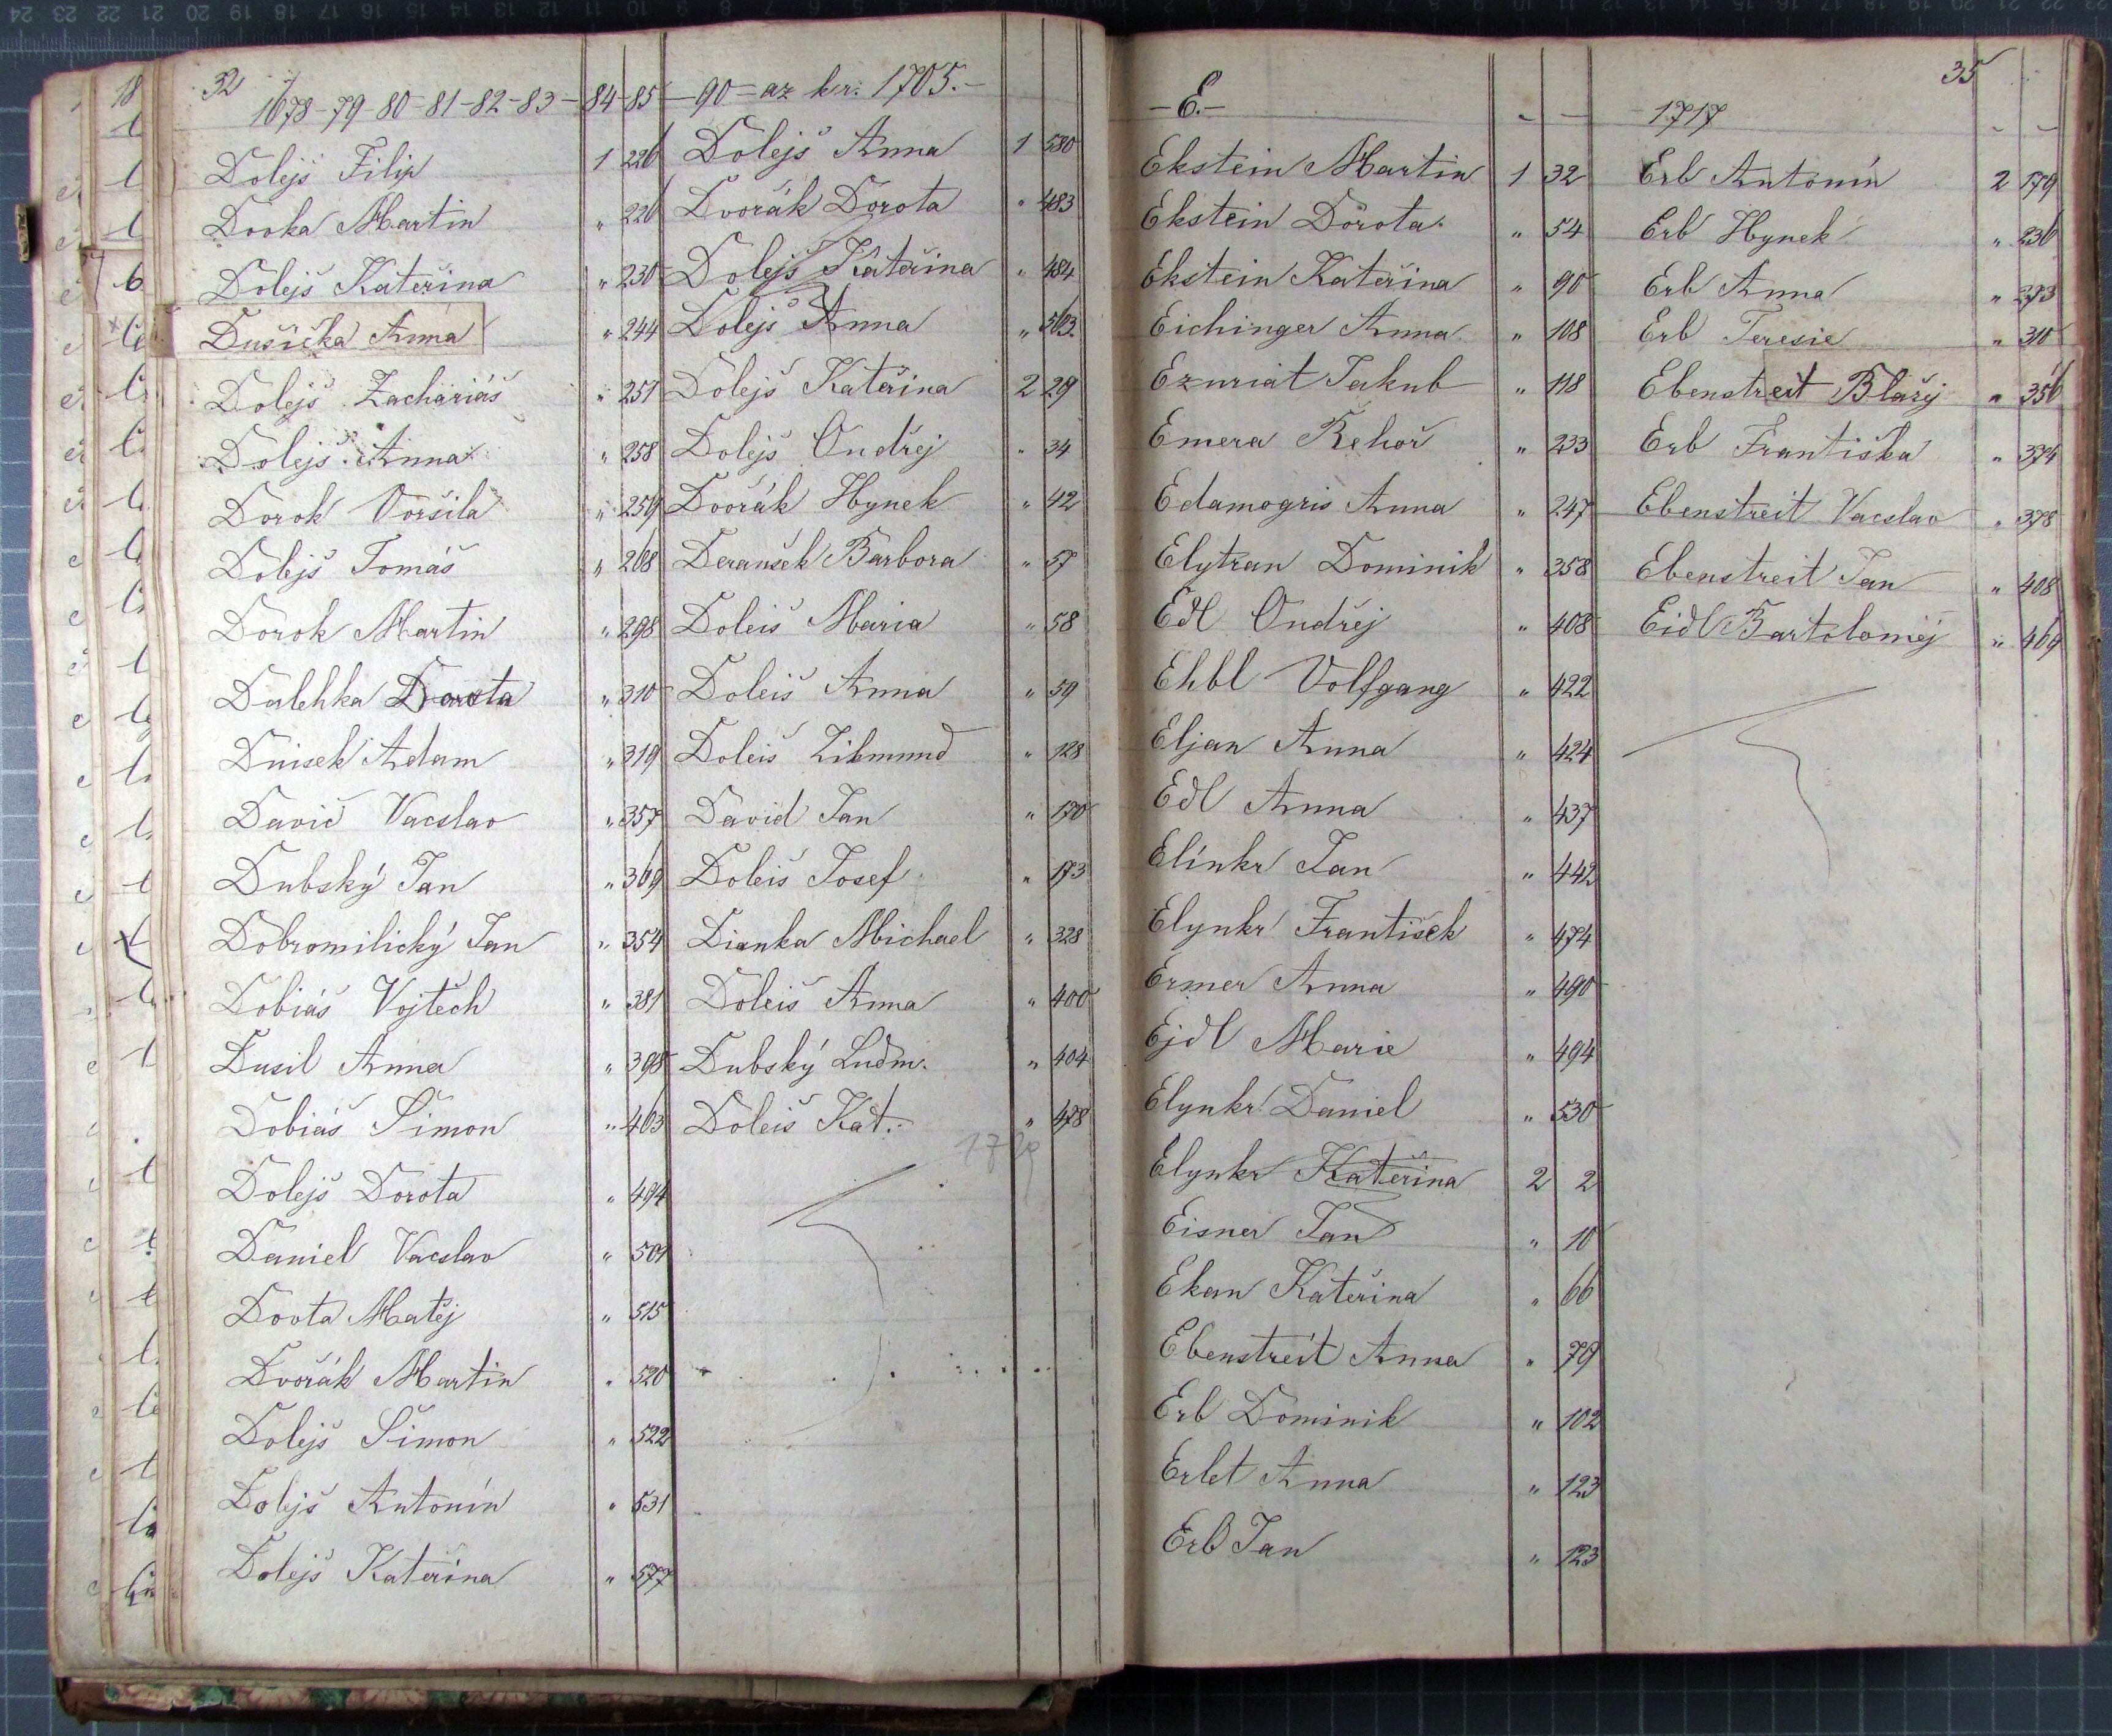 32
1678-79-80-81-82-83-84-85-90-az kr: 1705.-
Dolejš Filip 1 226
Dooka Martin " 226
Dolejš Kateřina " 230
Dušička Anna " 244
Dolejš Zachariáš " 251
Dolejš Anna " 258
Dorok Voršila " 259
Dolejš Tomáš " 268
Dorok Martin " 298
Dulehka Dorota " 310
Dnisek Adam " 319
David Vacslav " 357
Dubský Jan " 369
Dobromilický Jan " 354
Dobiáš Vojtěch " 381
Dusil Anna " 398
Dobiáš Šimon " 463
Dolejš Dorota " 494
Daniel Vacslav " 501
Dovta Matěj " 515
Dvořák Martin " 520
Dolejš Šimon " 522
Dolejš Antonín " 531
Dolejš Kateřina " 577
Dolejš Anna 1 580
Dvořák Dorota " 483
Dolejš Kateřina " 484
Dolejš Anna " 503
Dolejš Kateřina 2 29
Dolejš Ondřej " 34
Dvořák Hynek " 42
Beranšek Barbora " 57
Doleiš Maria " 58
Doleiš Anna " 59
Doleiš Zikmund " 128
David Jan " 170
Doleiš Josef " 173
Dianka Michael " 328
Doleiš Anna " 400
Dubský Ludm. " 404
Doleiš Kat. " 478
-E.-
Ekstein Martin 1 32
Ekstein Dorota. " 54
Ekstein Kateřina " 90
Eichinger Anna " 108
Ezuriat Jakub " 118
Emera Řehoř " 233
Edamogris Anna " 247
Elytran Dominik " 358
Edl Ondřej " 408
Ehbl Volfgang " 422
Eljan Anna " 424
Edl Anna " 437
Elínkr Jan " 442
Elynkr František " 474
Ermer Anna " 490
Ejdl Marie " 494
Elynkr Daniel " 530
Elynkr Kateřina 2 2
Eisner Jan " 10
Ekan Kateřina " 66
Ebenstreit Anna " 79
Erb Dominik " 102
Erlet Anna " 123
Erb Jan " 123
35
-1717
Erb Antonín 2 179
Erb Hynek " 236
Erb Anna " 273
Erb Teresie " 310
Ebenstreit Blažej " 356
Erb Františka " 374
Ebenstreit Vacslav " 378
Ebenstreit Jan " 408
Eidl Bartoloměj " 469